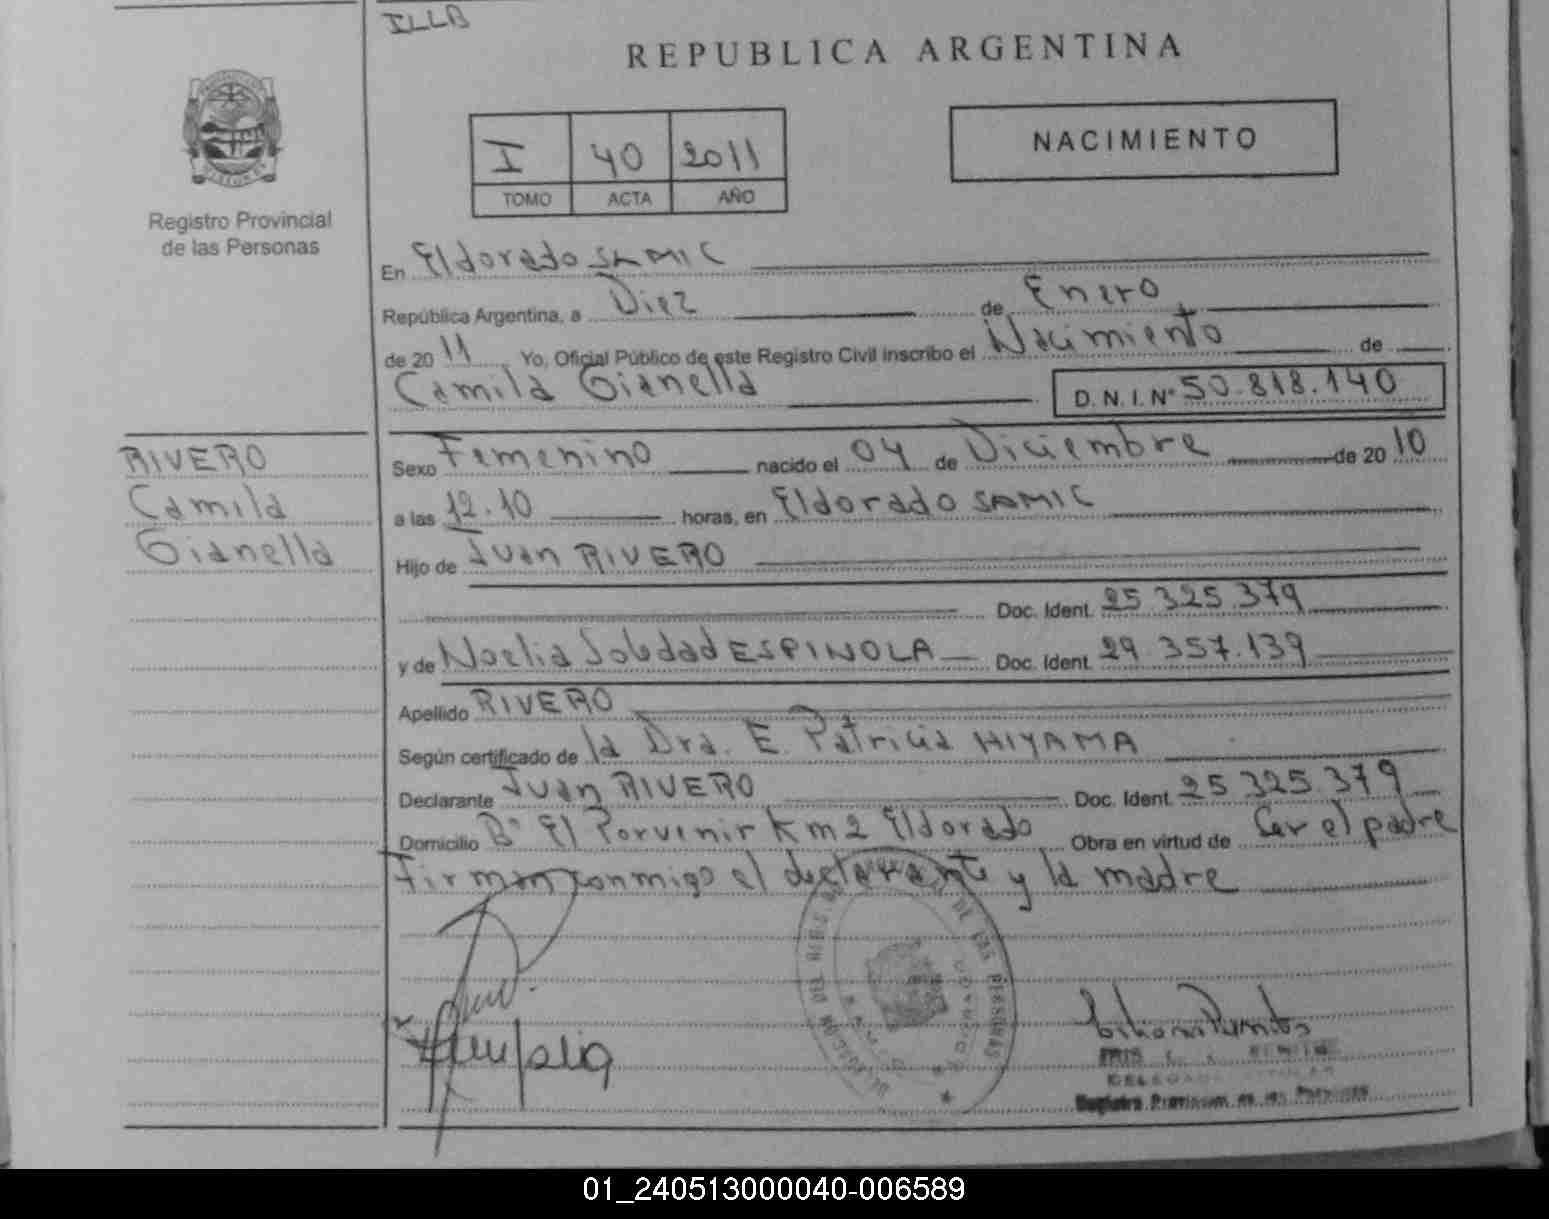 ILLB
REPUBLICA ARGENTINA
I 40 2011
TOMO ACTA AÑO
NACIMIENTO
Registro Provincial
de las Personas
En Eldorado SAMIC
República Argentina, a Diez de Enero
de 2011 Yo, Oficial Público de este Registro Civil inscribo el Nacimiento de
Camila Gianella D.N.I.Nº 50.818.140
RIVERO
Camila
Gianella
Sexo Femenino nacido el 04 de Diciembre de 2010
a las 12.10 horas, en Eldorado SAMIC
Hijo de Juan RIVERO
Doc. Ident. 25.325.379
y de Noelia Soledad ESPINOLA Doc. Ident. 29.357.139
Apellido RIVERO
Según certificado de la Dra. E. Patricia HIYAMA
Declarante Juan RIVERO Doc. Ident. 25.325.379
Domicilio Bº El Porvenir Km 2 Eldorado Obra en virtud de Ser el padre
Firman conmigo el declarante y la madre
DE LAS PERSONAS
Registro Provincial de las Personas
01_240513000040-006589